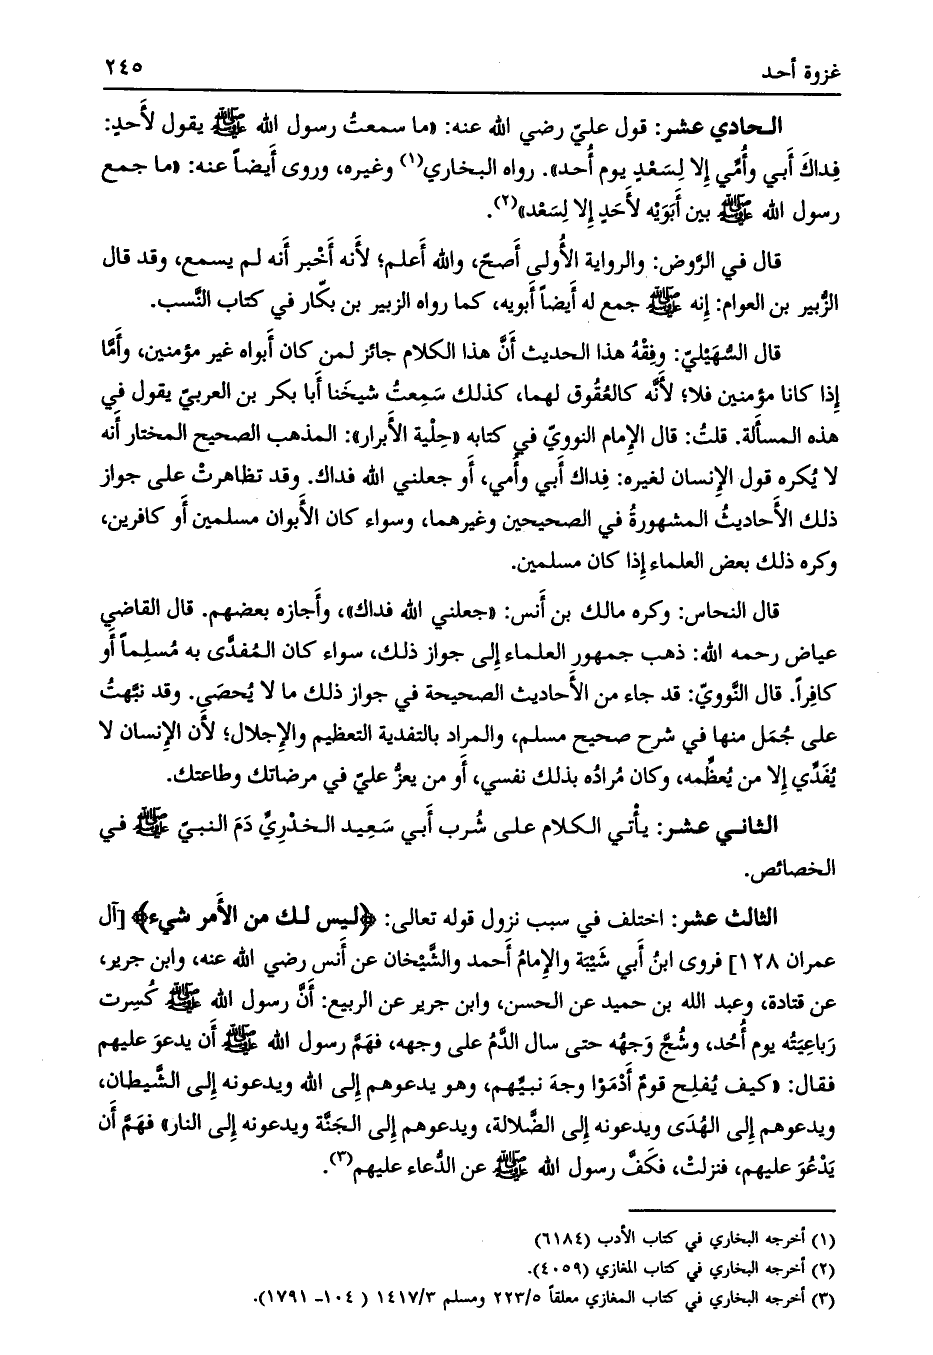 غزوة أحد
٢٤٥
الحادي عشر: قول عليّ رضي الله عنه: «ما سمعتُ رسول الله ﷺ يقول لأَحدٍ:
فِداكَ أَبي وأُمِّي إلا لِسَعْدٍ يوم أُحد». رواه البخاري(١) وغيره، وروى أَيضاً عنه: «ما جمع
رسول الله ﷺ بين أَبَوَيْه لأَحَدٍ إلا لِسَعْد»(٢).
قال في الرَّوض: والرواية الأُولى أَصحّ، والله أَعلم؛ لأنه أَخْبر أَنه لم يسمع، وقد قال
الزُّبير بن العوام: إنه ﷺ جمع له أَيضاً أَبويه، كما رواه الزبير بن بكّار في كتاب النَّسب.
قال السُّهَيْليّ: وفِقْهُ هذا الحديث أَنَّ هذا الكلام جائز لمن كان أَبواه غير مؤمنين، وأَمَّا
إذا كانا مؤمنين فلا؛ لأَنَّه كالعُقُوق لهما، كذلك سَمِعتُ شيخَنا أَبا بكر بن العربيّ يقول في
هذه المسألة. قلتُ: قال الإمام النوويّ في كتابه «حِلْية الأبرار»: المذهب الصحيح المختار أَنه
لا يُكره قول الإنسان لغيره: فِداك أَبي وأُمي، أَو جعلني الله فداك. وقد تظاهرتْ على جواز
ذلك الأَحاديثُ المشهورةُ في الصحيحين وغيرهما، وسواء كان الأَبوان مسلمين أَو كافرين،
وكره ذلك بعض العلماء إذا كان مسلمين.
قال النحاس: وكره مالك بن أَنس: «جعلني الله فداك»، وأَجازه بعضهم. قال القاضي
عياض رحمه الله: ذهب جمهور العلماء إلى جواز ذلك، سواء كان المُفدَّى به مُسلِماً أَو
كافِراً. قال النَّوويّ: قد جاء من الأَحاديث الصحيحة في جواز ذلك ما لا يُحصَى. وقد نبَّهتُ
على جُمَل منها في شرح صحيح مسلم، والمراد بالتفدية التعظيم والإجلال؛ لأن الإنسان لا
يُفَدِّي إلا من يُعظِّمه، وكان مُرادُه بذلك نفسي، أَو من يعزُّ عليّ في مرضاتك وطاعتك.
الثاني عشر: يأتي الكلام على شُرب أَبي سَعِيد الخدْرِيِّ دَمَ النبيّ ﷺ في
الخصائص.
الثالث عشر: اختلف في سبب نزول قوله تعالى: ﴿ليس لك من الأَمر شيء﴾ [آل
عمران ١٢٨] فروى ابنُ أَبي شَيْبَة والإمامُ أَحمد والشَّيْخان عن أَنس رضي الله عنه، وابن جرير،
عن قتادة، وعبد الله بن حميد عن الحسن، وابن جرير عن الربيع: أَنَّ رسول الله ﷺ كُسِرت
رَباعِيَتُه يوم أُحُد، وشُجَّ وَجهُه حتى سال الدَّمُ على وجهه، فهَمَّ رسول الله ﷺ أَن يدعوَ عليهم
فقال: «كيف يُفلِح قومٌ أَدْمَوْا وجهَ نبيِّهم، وهو يدعوهم إلى الله ويدعونه إلى الشَّيطان،
ويدعوهم إلى الهُدَى ويدعونه إلى الضَّلالة، ويدعوهم إلى الجنَّة ويدعونه إلى النار» فهَمَّ أَن
يَدْعُوَ عليهم، فنزلتْ، فكَفَّ رسول الله ﷺ عن الدُّعاء عليهم(٣).
(١) أخرجه البخاري في كتاب الأدب (٦١٨٤)
(٢) أخرجه البخاري في كتاب المغازي (٤٠٥٩).
(٣) أخرجه البخاري في كتاب المغازي معلقاً ٢٢٣/٥ ومسلم ١٤١٧/٣ ( ١٠٤- ١٧٩١).